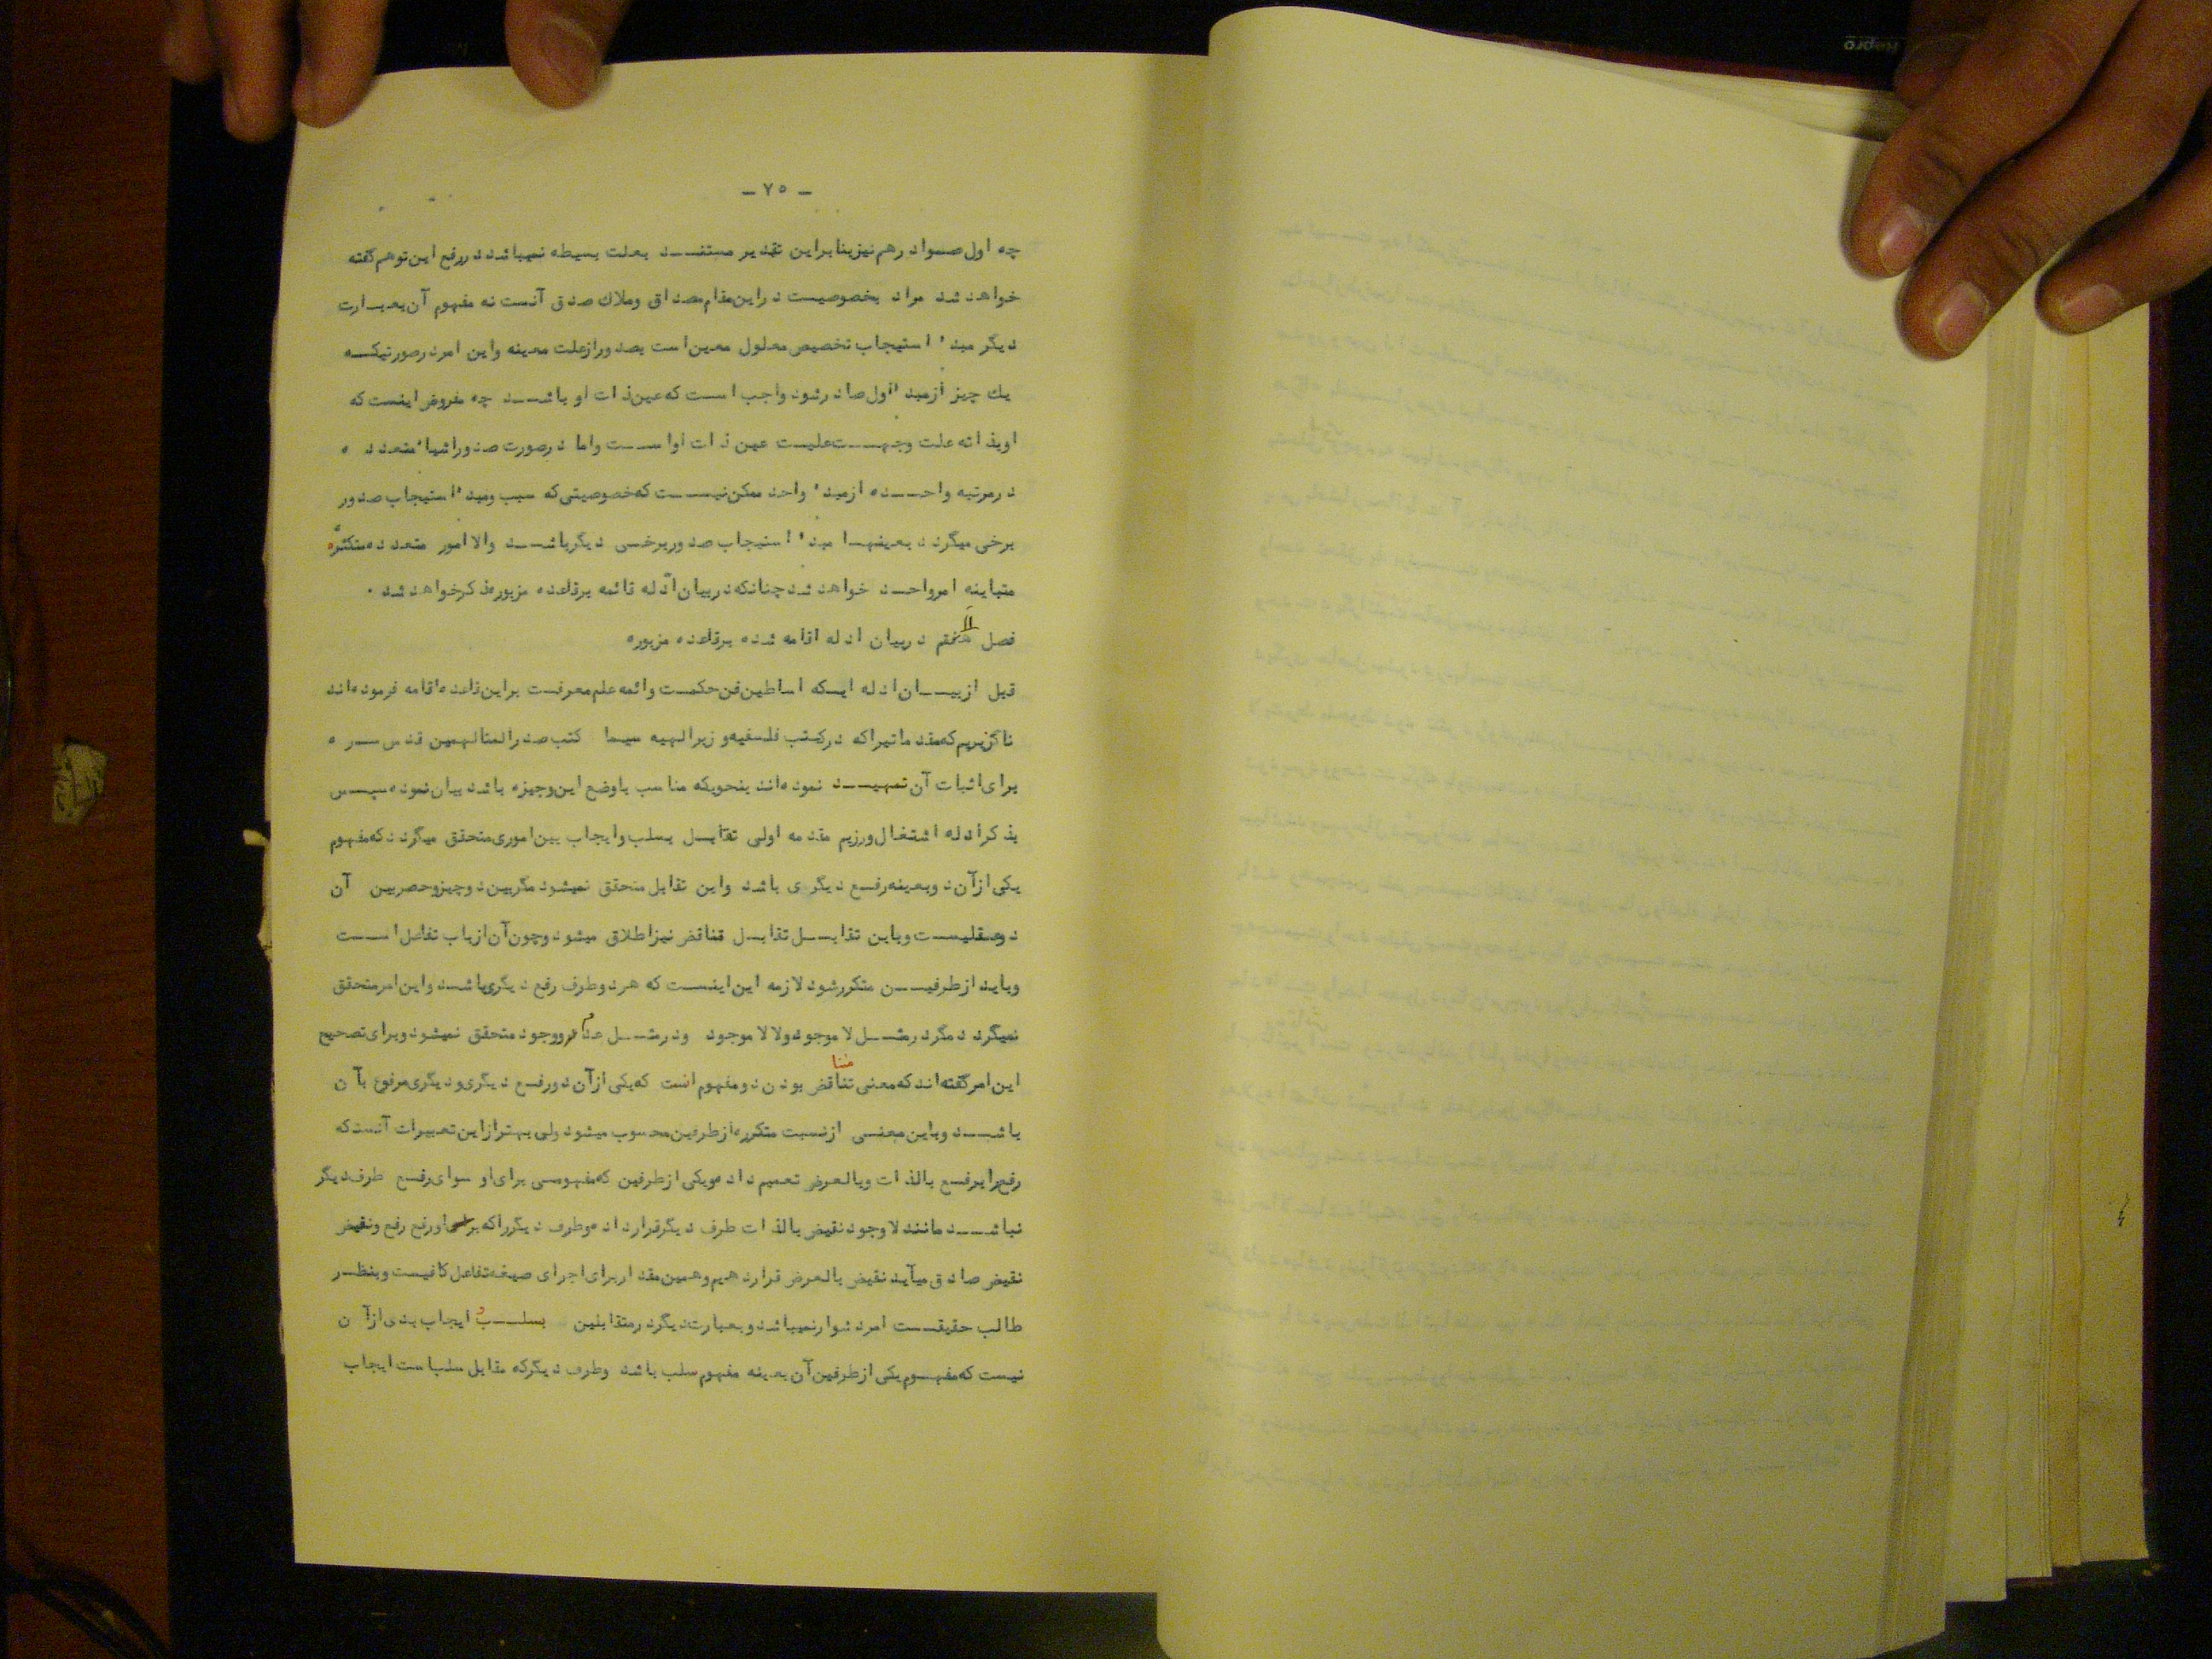 - ۷۵ -
چه اول صوادرهم نیز بنابراین تقدیر مستند بعلت بسیطه نمیباشد در رفع این توهم گفته
خواهد شد مراد بخصوصیت در این مقام مصداق وملاك صدق آنست نه مفهوم آن بعبارت
دیگر مبدء استیجاب تخصیص معلول معین است بصدور از علت معینه واین امر در صورتیکه
یك چیز از مبدء اول صادر شود واجب است که عین ذات او باشد چه مفروض اینست که
اوبذاته علت وجهت علیت عین ذات اوا ست واما در صورت صدور اشیاء متعدده
در مرتبه واحده از مبدء واحد ممکن نیست که خصوصیتی که سبب ومبدء استیجاب صدور
برخی میگردد بعینها مبدء استیجاب صدور برخی دیگر باشد والا امور متعدده متکثره
متباینه امر واحد خواهد شد چنانکه در بیان ادله قائمه برقاعده مزبوره ذکر خواهد شد .
فصل هفتم در بیان ادله اقامه شده برقاعده مزبوره
قبل از بیان ادله ایکه اساطین فن حکمت وائمه علم معرفت براین قاعده اقامه فرموده اند
ناگزیریم که مقدماتیرا که در کتب فلسفیه و زبر الهیه سیما کتب صدرالمتالهین قدس سره
برای اثبات آن تمهید نموده اند بنحویکه مناسب باوضع این وجیزه باشد بیان نموده سپس
بذکر ادله اشتغال ورزیم مقدمه اولی تقابل بسلب وایجاب بین اموری متحقق میگردد که مفهوم
یکی از آن دو بعینه رفع دیگری باشد واین تقابل متحقق نمیشود مگر بین دو چیز وحصر بین آن
دو عقلیست وباین تقابل تقابل تناقض نیز اطلاق میشود وچون آن از باب تفاعل است
وباید از طرفین متکرر شود لازمه این اینست که هر دو طرف رفع دیگری باشد واین امر متحقق
نمیگردد مگر در مثل لا موجود ولا لا موجود ودر مثل عدم ووجود متحقق نمیشود وبرای تصحیح
این امر گفته اند که معنی تناقض بودن دو مفهوم انست که یکی از آن دو رفع دیگری و دیگری مرفوع بآن
باشد وباین معنی از نسبت متکرره از طرفین محسوب میشود ولی بهتر از این تعبیرات آنست که
رفع را برفع بالذات وبالعرض تعمیم داده ویکی از طرفین که مفهومی برای او سوای رفع طرف دیگر
نباشد مانند لا وجود نقیض بالذات طرف دیگر قرار داده وطرف دیگر را که برای او رفع رفع ونقیض
نقیض صادق میآید نقیض بالعرض قرار دهیم وهمین مقدار برای اجرای صیغه تفاعل کافیست وبنظر
طالب حقیقت امر دشوار نمیباشد وبعبارت دیگر در متقابلین بسلب و ایجاب بدی از آن
نیست که مفهوم یکی از طرفین آن بعینه مفهوم سلب باشد وطرف دیگر که مقابل سلب است ایجاب